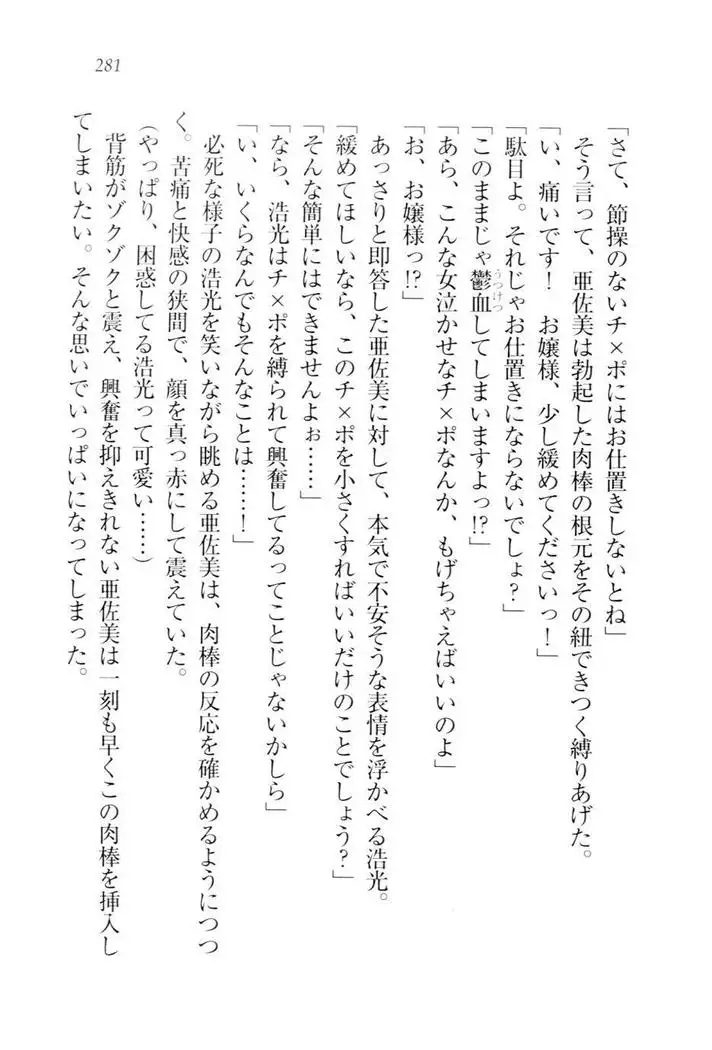 281
「さて、節操のないチ×ポにはお仕置きしないとね」
そう言って、亜佐美は勃起した肉棒の根元をその紐できつく縛りあげた。
「い、痛いです！　お嬢様、少し緩めてくださいっ！」
「駄目よ。それじゃお仕置きにならないでしょ？」
「このままじゃ鬱血してしまいますよっ!?」
「あら、こんな女泣かせなチ×ポなんか、もげちゃえばいいのよ」
「お、お嬢様っ!?」
あっさりと即答した亜佐美に対して、本気で不安そうな表情を浮かべる浩光。
「緩めてほしいなら、このチ×ポを小さくすればいいだけのことでしょう？」
「そんな簡単にはできませんよぉ……」
「なら、浩光はチ×ポを縛られて興奮してるってことじゃないかしら」
「い、いくらなんでもそんなことは……！」
必死な様子の浩光を笑いながら眺める亜佐美は、肉棒の反応を確かめるようにつつ
く。苦痛と快感の狭間で、顔を真っ赤にして震えていた。
（やっぱり、困惑してる浩光って可愛い……）
背筋がゾクゾクと震え、興奮を抑えきれない亜佐美は一刻も早くこの肉棒を挿入し
てしまいたい。そんな思いでいっぱいになってしまった。